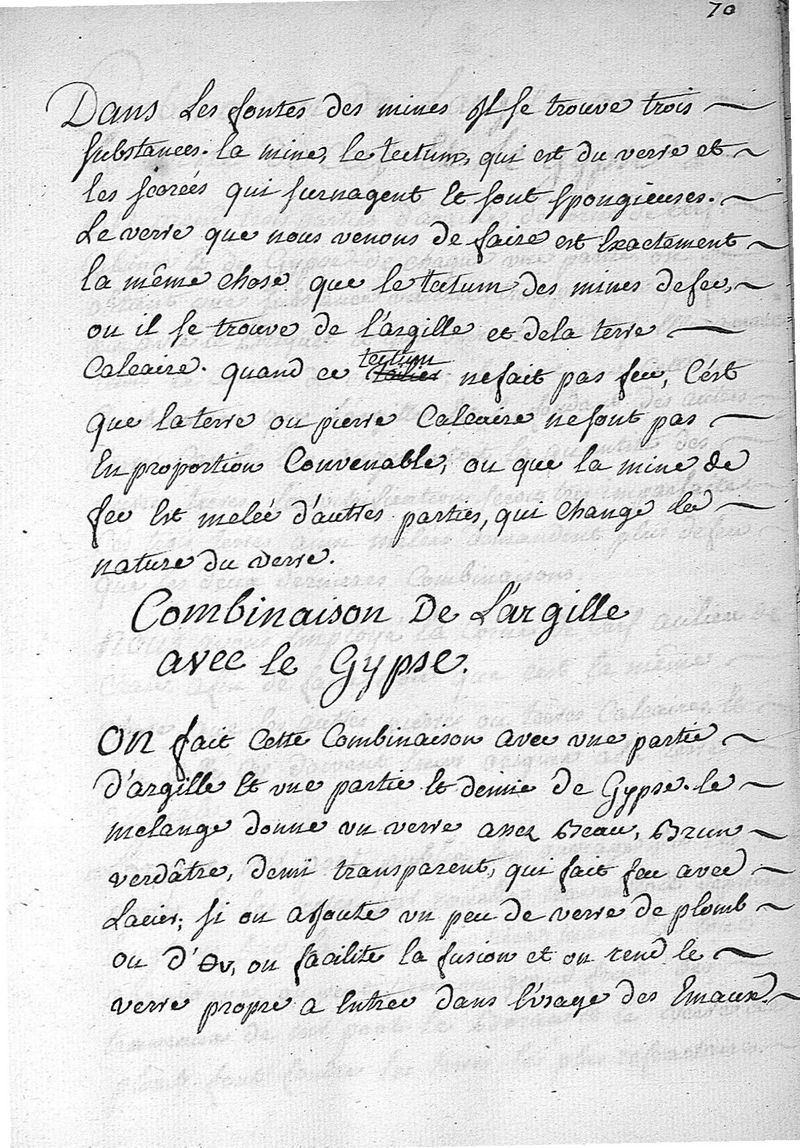 70
Dans Les fontes des mines Il se trouve trois
substances. la mine, le tectum, qui est du verre et
les scorées qui surnagent Et sont spongieuses.
Le verre que nous venons de faire est Exactement
la même chose que le tectum des mines de fer,
ou il se trouve de l'argille et dela terre
Calcaire. quand ce tectum nefait pas feu, C'est
que la terre ou pierre Calcaire nesont pas
En proportion Convenable, ou que la mine de
fer Est melée d'autres parties, qui change la
nature du verre.
Combinaison De L'argille
avec le Gypse.
On fait Cette Combinaison avec une partie
d'argille Et une partie Et demie de Gypse. le
melange donne un verre assez Beau, Brun
verdâtre, demi transparent, qui fait feu avec
Lacier; si on ajoute un peu de verre de plomb
ou d'Or, on facilite la fusion et on rend le
verre propre a Entrer dans l'usage des Emaux.